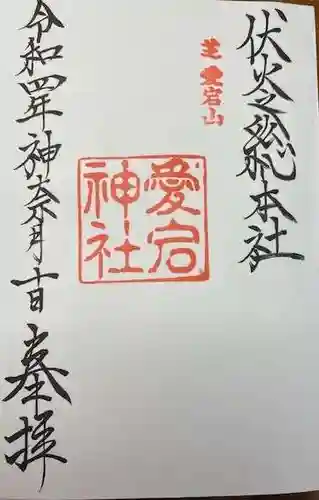 伏火之総本社
芝 愛宕山
愛宕
神社
令和四年神奈月十日
登拝